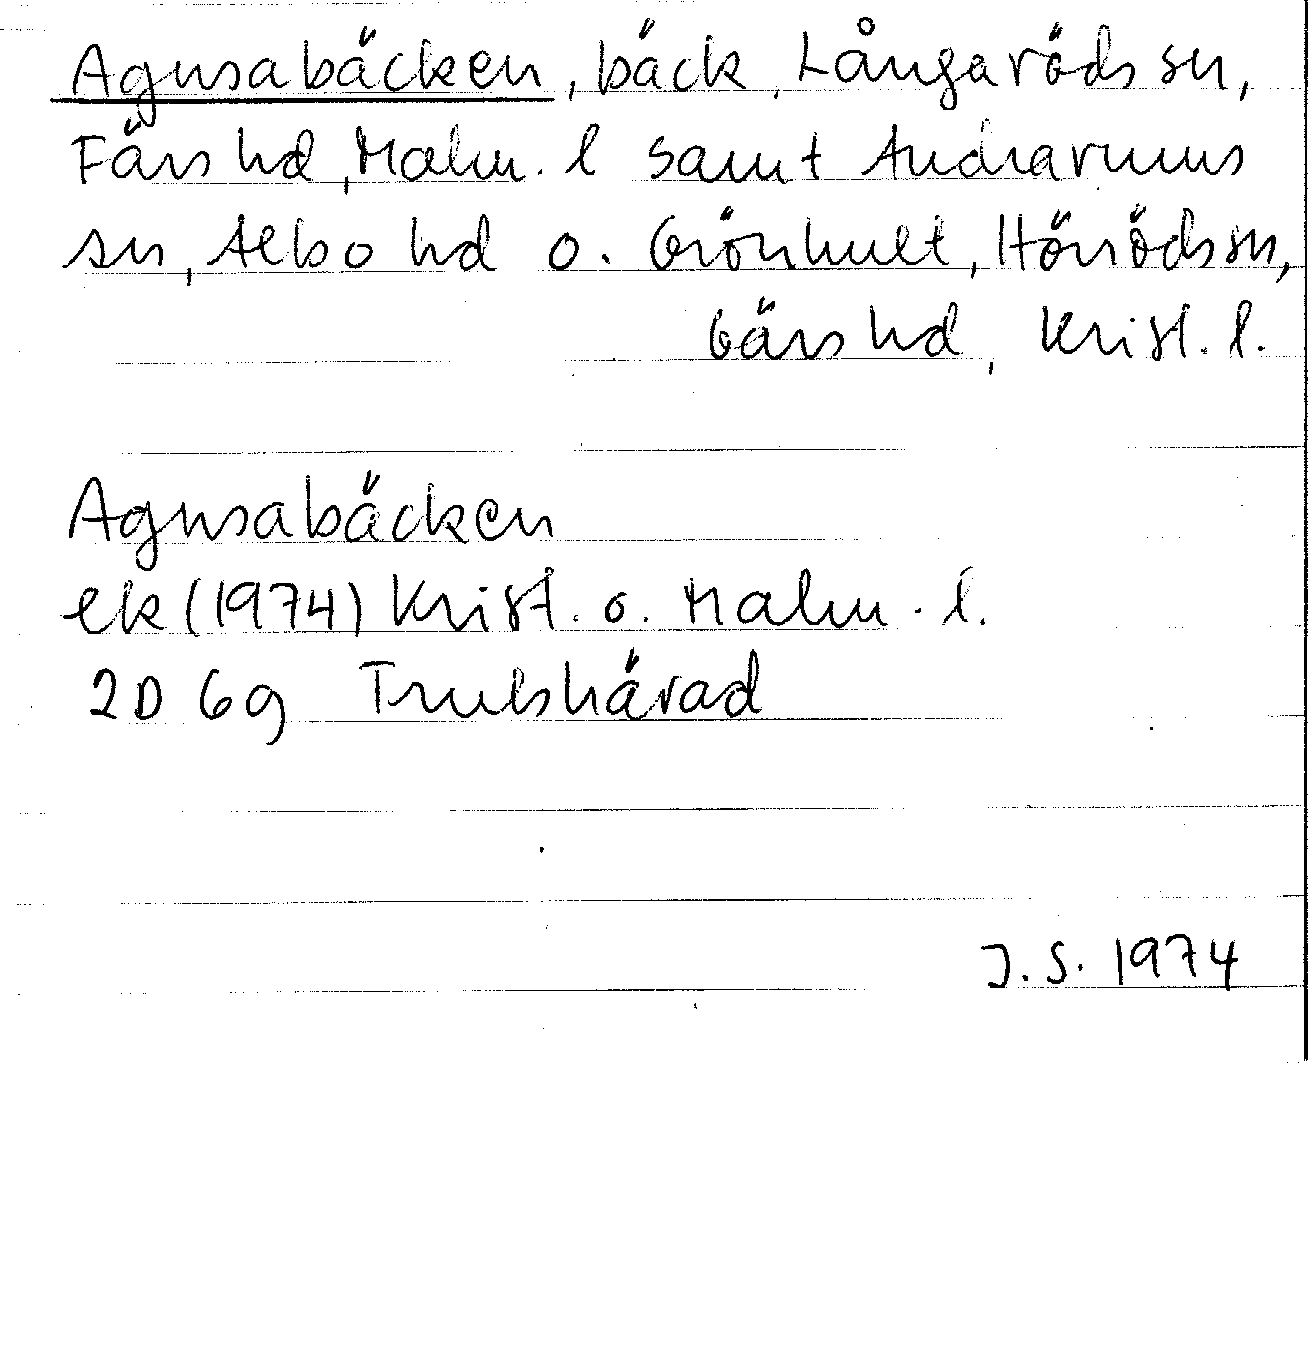 Agusabäcken, bäck, Långaröds sn,
Färs hd, Malm. l samt Andrarums
sn, Albo hd o. Grönhult, Hörröds sn,
Gärs hd, Krist. l.
Agusabäcken
ek (1974) Krist. o. Malm. l.
2D 6g Trulshärad
J.S. 1974